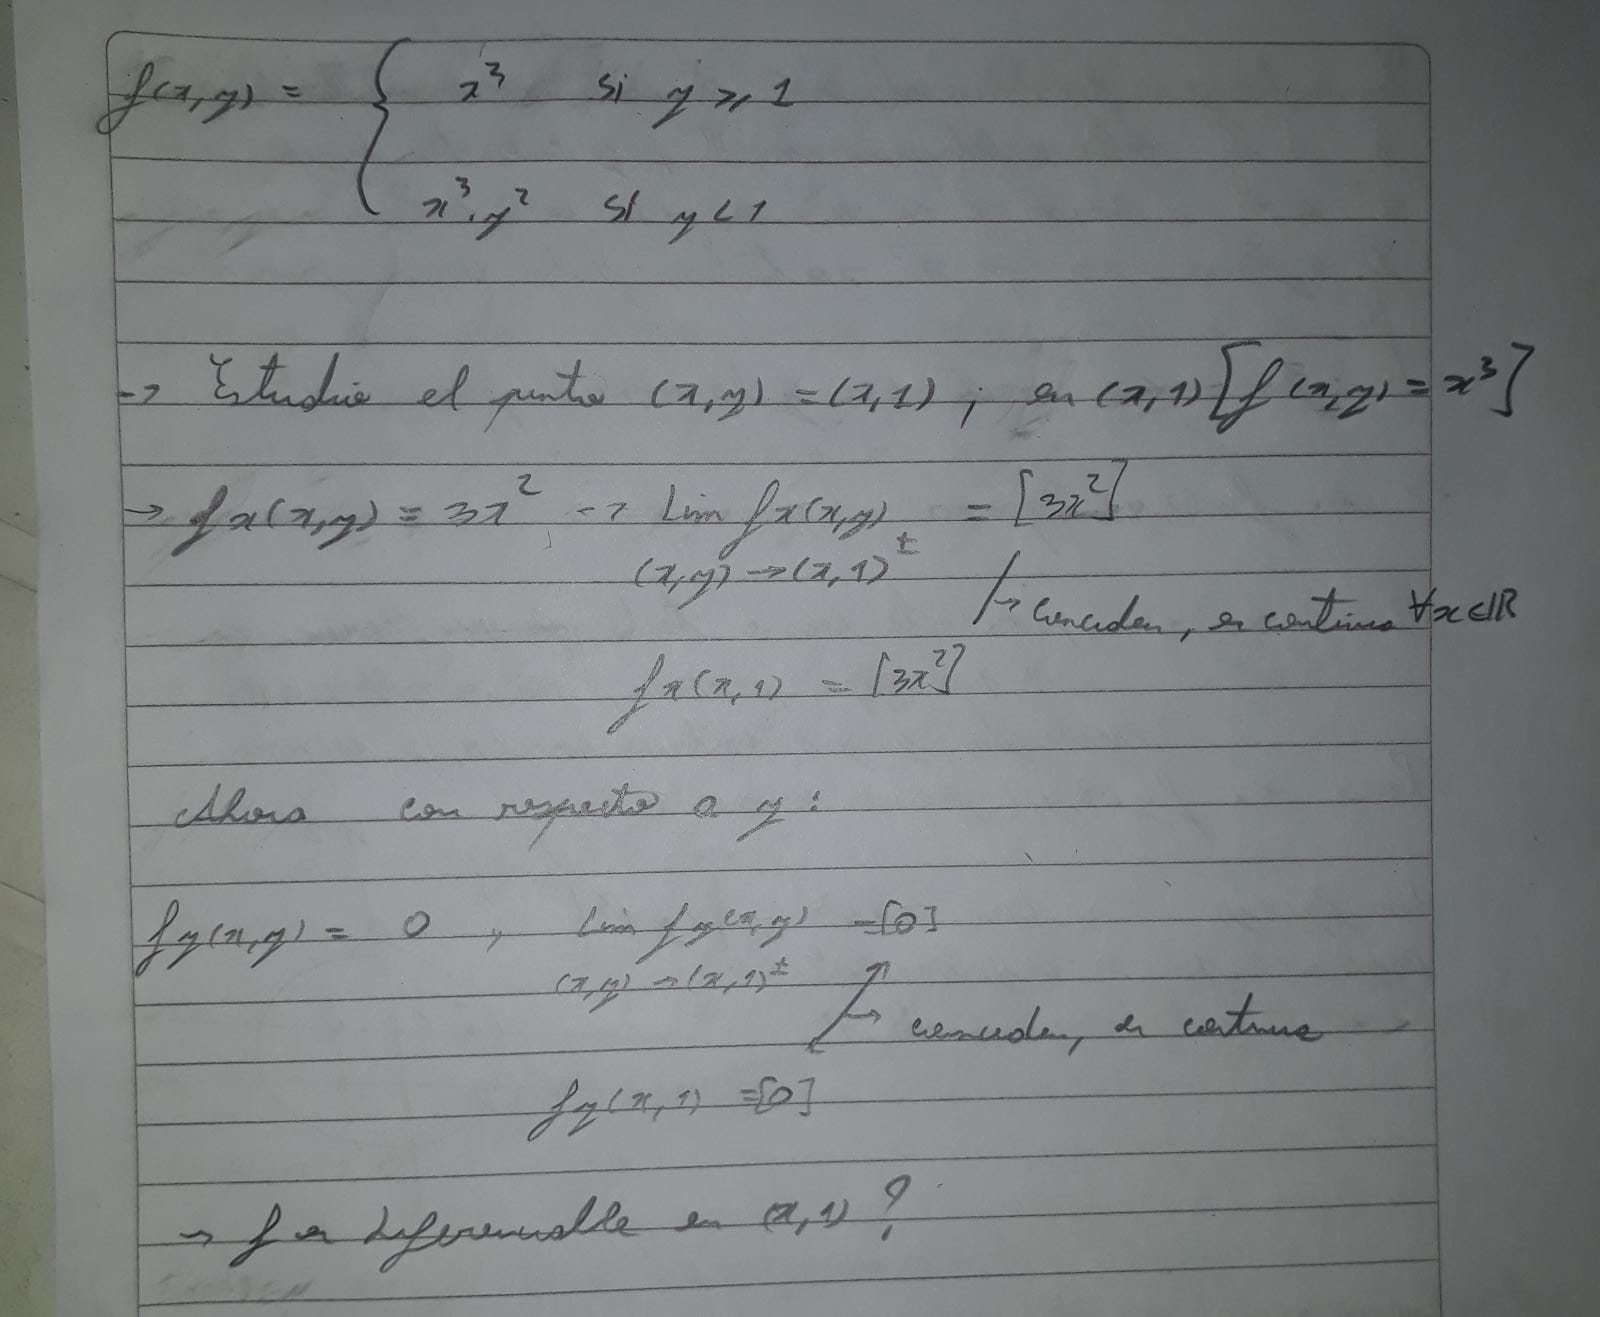 f(x,y) = { x³ si y ⩾ 1
x³.y² si y < 1
→ Estudio el punto (x,y) = (x,1) ; en (x,1) [f(x,y) = x³]
→ fx(x,y) = 3x² → Lim fx(x,y) = [3x²]
(x,y) → (x,1)±
↳ coinciden, es continua ∀x∈ℝ
fx(x,1) = [3x²]
Ahora con respecto a y :
fy(x,y) = 0 , Lim fy(x,y) = [0]
(x,y) → (x,1)±
→ coinciden, es continua
fy(x,1) = [0]
→ f es diferenciable en (x,1) ?